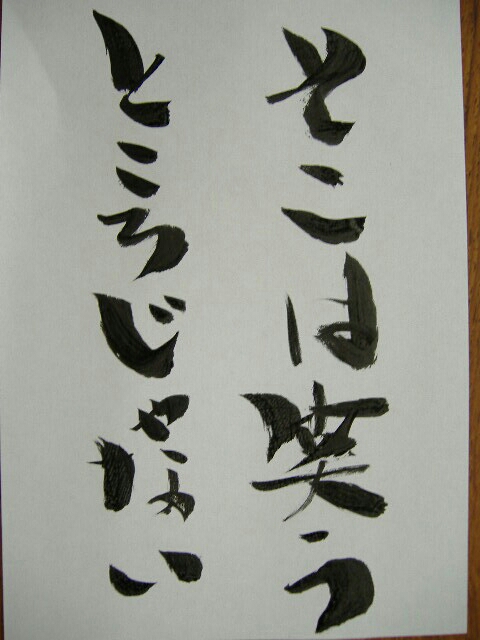 そこは笑う
ところじゃない